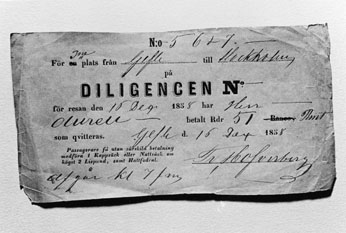 N:o 5627
För en plats från Gefle till Stockholm
på
DILIGENCEN No
för resan den 18 Dec. 1858 har Herr
betalt Rdr 51 Banco, Rmt
som qvitteras. Gefle d. 16 Dec 1858
Passagerare få utan särskild betalning
medföra 1 Kappsäck eller Nattsäck om
högst 2 Lispund, samt Hattfodral.
afgår kl 7 fm